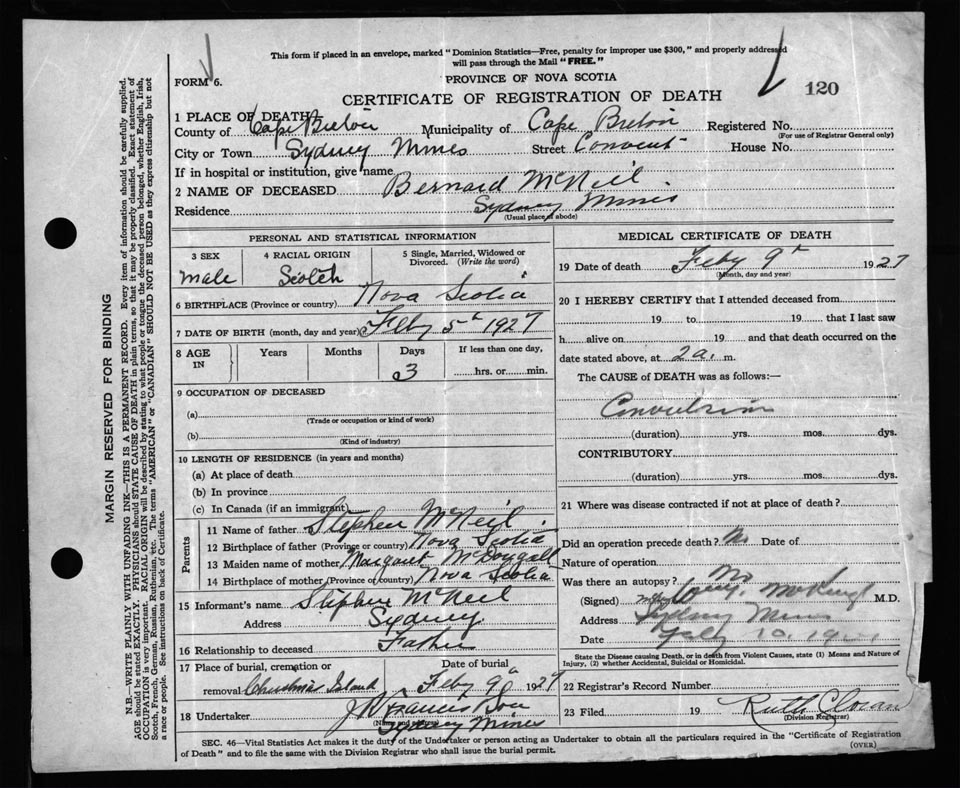 This form if placed in an envelope, marked "Dominion Statistics—Free, penalty for improper use $300," and properly addressed
will pass through the Mail "FREE."
FORM 6.
PROVINCE OF NOVA SCOTIA
120
CERTIFICATE OF REGISTRATION OF DEATH
1 PLACE OF DEATH
County of Cape Breton Municipality of Cape Breton Registered No.
(For use of Registrar General only)
City or Town Sydney Mines Street Convent House No.
If in hospital or institution, give name
2 NAME OF DECEASED Bernard McNeil.
Residence Sydney Mines
(Usual place of abode)
PERSONAL AND STATISTICAL INFORMATION
3 SEX 4 RACIAL ORIGIN 5 Single, Married, Widowed or Divorced. (Write the word)
male Scotch S
6 BIRTHPLACE (Province or country) Nova Scotia
7 DATE OF BIRTH (month, day and year) Feby 5th 1927
8 AGE IN Years Months Days If less than one day,
3 hrs. or min.
9 OCCUPATION OF DECEASED
(a)
(Trade or occupation or kind of work)
(b)
(Kind of industry)
10 LENGTH OF RESIDENCE (in years and months)
(a) At place of death
(b) In province
(c) In Canada (if an immigrant)
Parents
11 Name of father Stephen McNeil.
12 Birthplace of father (Province or country) Nova Scotia
13 Maiden name of mother Margaret McDougall
14 Birthplace of mother (Province or country) Nova Scotia
15 Informant's name Stephen McNeil
Address Sydney
16 Relationship to deceased Father
17 Place of burial, cremation or removal Island Date of burial Feby 9th 1927
18 Undertaker Francis
Sydney Mines
MEDICAL CERTIFICATE OF DEATH
19 Date of death Feby 9th 1927
(Month, day and year)
20 I HEREBY CERTIFY that I attended deceased from
19 to 19 that I last saw
h alive on 19 and that death occurred on the
date stated above, at 2 a. m.
The CAUSE of DEATH was as follows:—
Convulsions
(duration) yrs. mos. dys.
CONTRIBUTORY
(duration) yrs. mos. dys.
21 Where was disease contracted if not at place of death?
Did an operation precede death? No Date of
Nature of operation
Was there an autopsy? No
(Signed) M.D.
Address Sydney Mines
Date Feby 10.
State the Disease causing Death, or in death from Violent Causes, state (1) Means and Nature of
Injury, (2) whether Accidental, Suicidal or Homicidal.
22 Registrar's Record Number
23 Filed 19 Ruth
(Division Registrar)
SEC. 46—Vital Statistics Act makes it the duty of the Undertaker or person acting as Undertaker to obtain all the particulars required in the "Certificate of Registration
of Death" and to file the same with the Division Registrar who shall issue the burial permit.
(OVER)
MARGIN RESERVED FOR BINDING
N.B.—WRITE PLAINLY WITH UNFADING INK—THIS IS A PERMANENT RECORD. Every item of information should be carefully supplied.
AGE should be stated EXACTLY. PHYSICIANS should STATE CAUSE OF DEATH in plain terms, so that it may be properly classified. Exact statement of
OCCUPATION is very important. RACIAL ORIGIN will be described by stating to what people or tongue the deceased person belonged, whether English, Irish,
Scotch, French, German, Russian, Ruthenian, etc. The terms "AMERICAN" or "CANADIAN" SHOULD NOT BE USED as they express citizenship but not
a race or people. See instructions on back of Certificate.